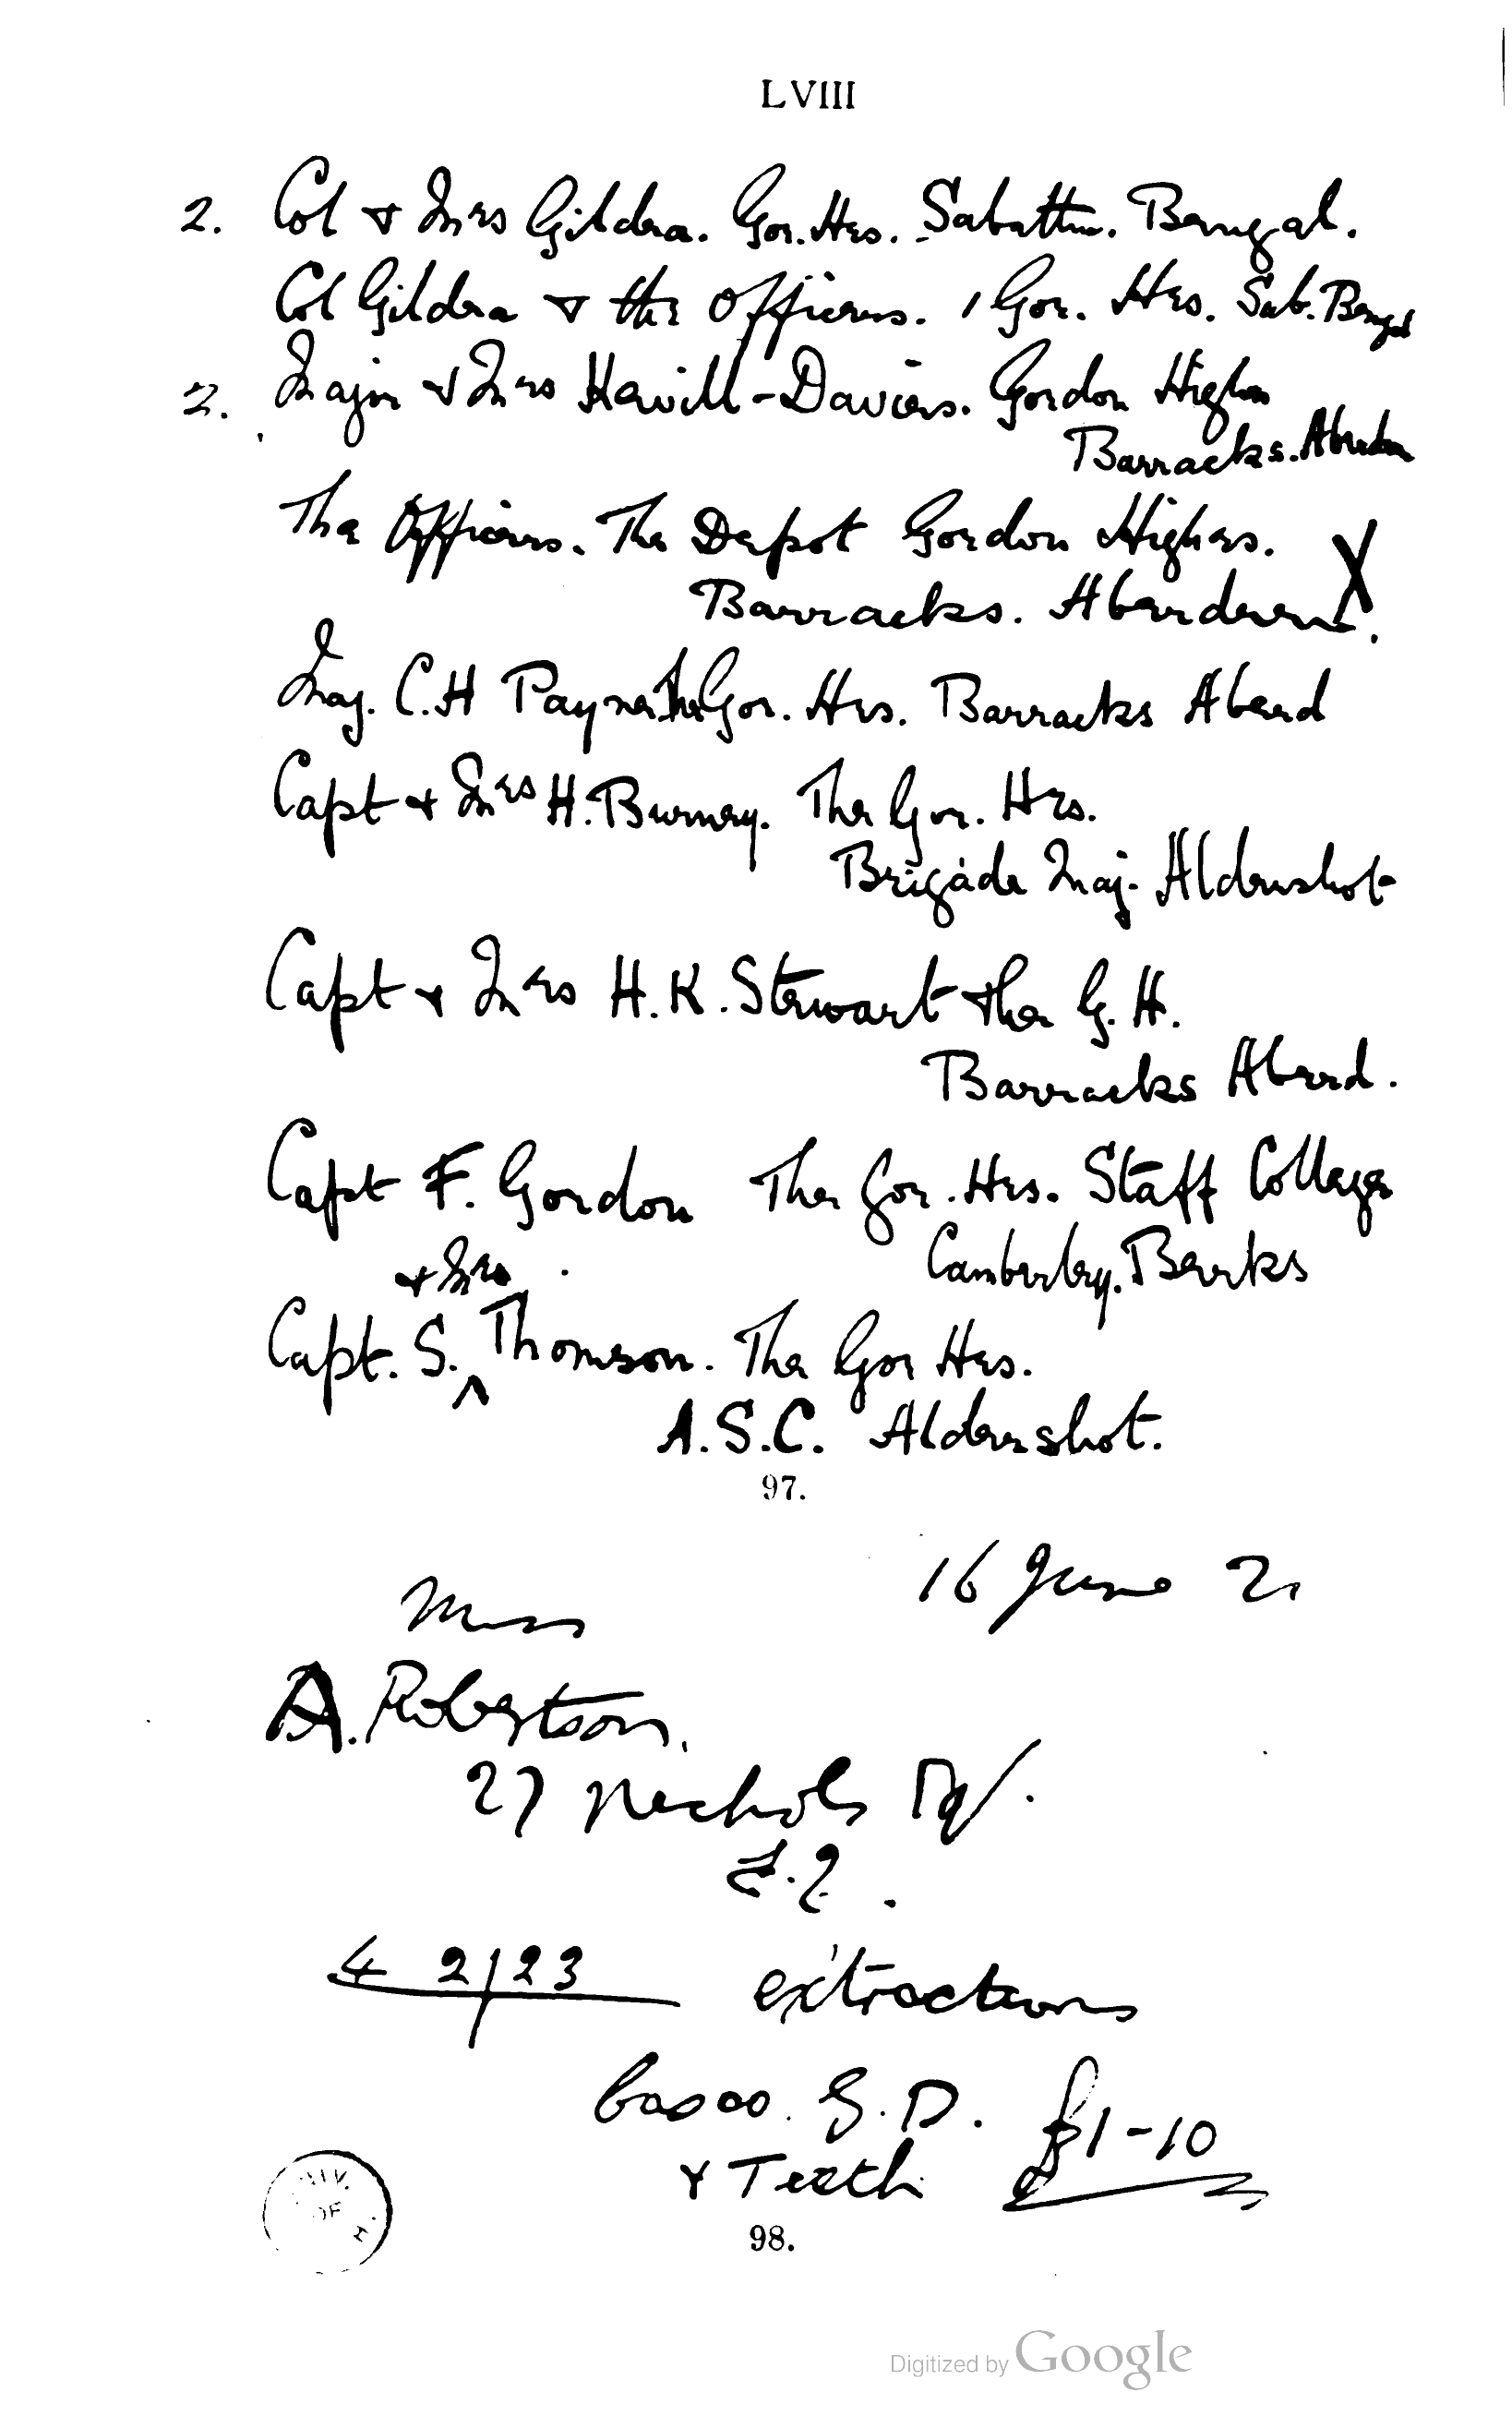 LVIII
2. Col & Mrs Gildea. Gor. Hrs. Sabathu. Bengal.
Col Gildea & the Officers. 1 Gor. Hrs. Sab. Bengal
2. Major & Mrs Kevill-Davies. Gordon Highrs
Barracks. Aberdeen
The Officers. The Depot Gordon Highrs.
Barracks. Aberdeen. X
Maj. C.H Payne The Gor. Hrs. Barracks Aberd
Capt & Mrs H. Burney. The Gor. Hrs.
Brigade Maj. Aldershot
Capt & Mrs H. K. Stewart The G. H.
Barracks Aberd.
Capt F. Gordon The Gor. Hrs. Staff College
Camberley. Berks
& Mrs
Capt. S. ^ Thomson. The Gor Hrs.
A.S.C. Aldershot.
97.
16 June 21
A. Robertson.
27 Nichols Sq.
E.2.
4 2/23 extractions
G.D. £1-10
& Teeth
98.
UNIV. OF
Digitized by Google